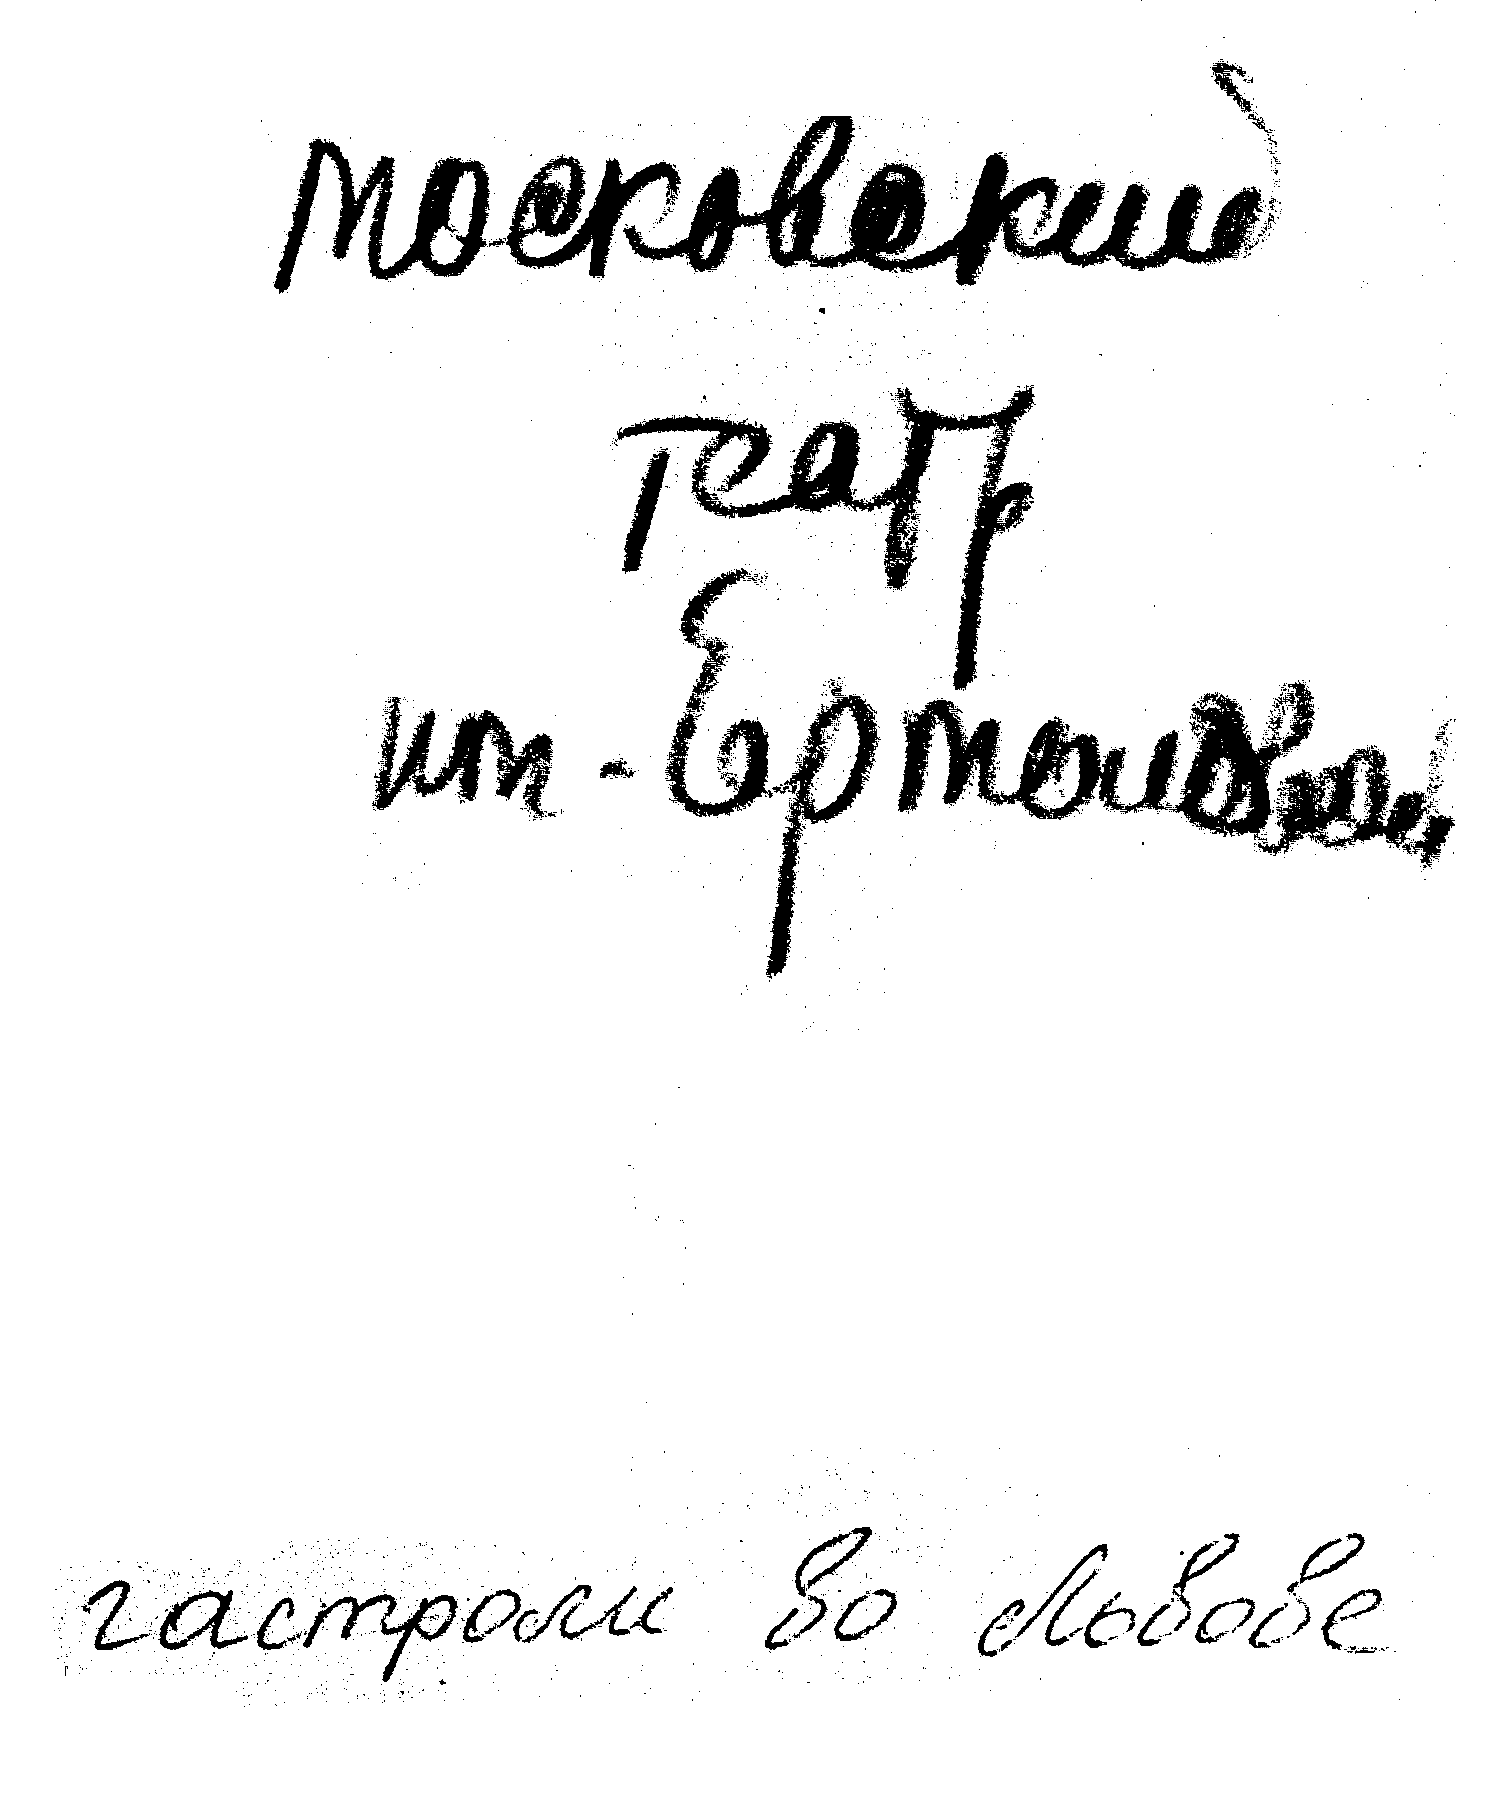 московский
театр
им. Ермоловой
гастроли во Львове